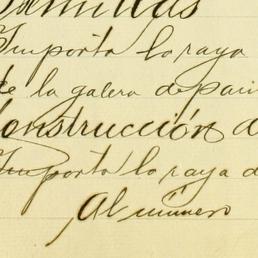 Familias
Importa la raya
de la galera de pari
Construcción d
Importa la raya d
Al número